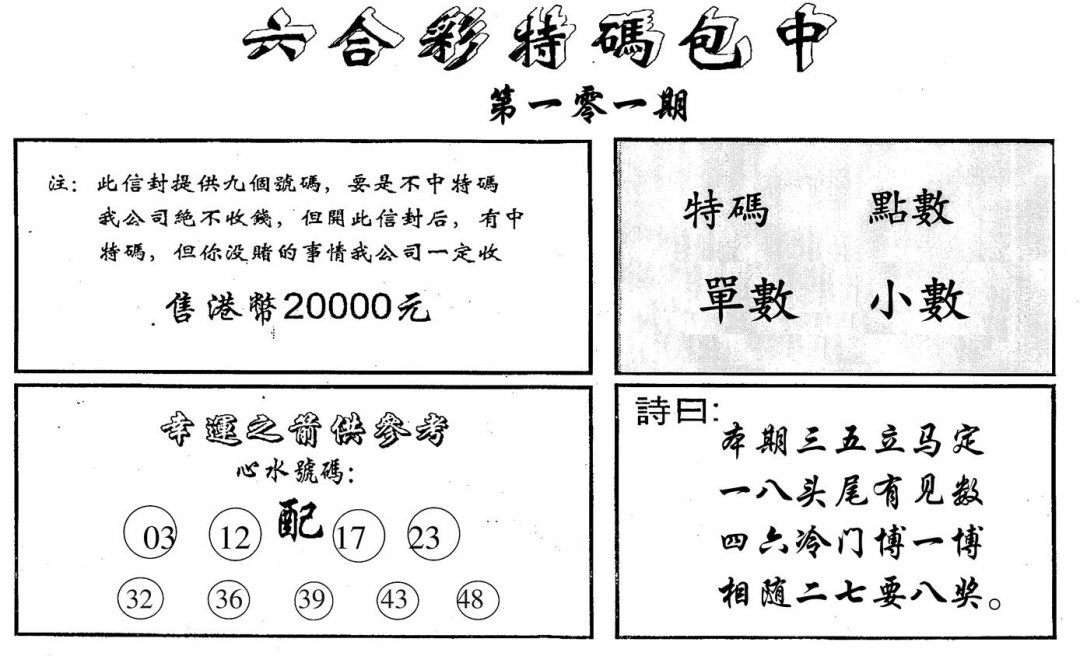 六合彩特碼包中
第一零一期
注：此信封提供九個號碼，要是不中特碼
我公司絕不收錢，但開此信封后，有中
特碼，但你没賭的事情我公司一定收
售港幣20000元
特碼 點數
單數 小數
幸運之箭供參考
心水號碼：
03 12 配 17 23
32 36 39 43 48
詩曰：
本期三五立马定
一八头尾有见数
四六冷门博一博
相随二七要八奖。